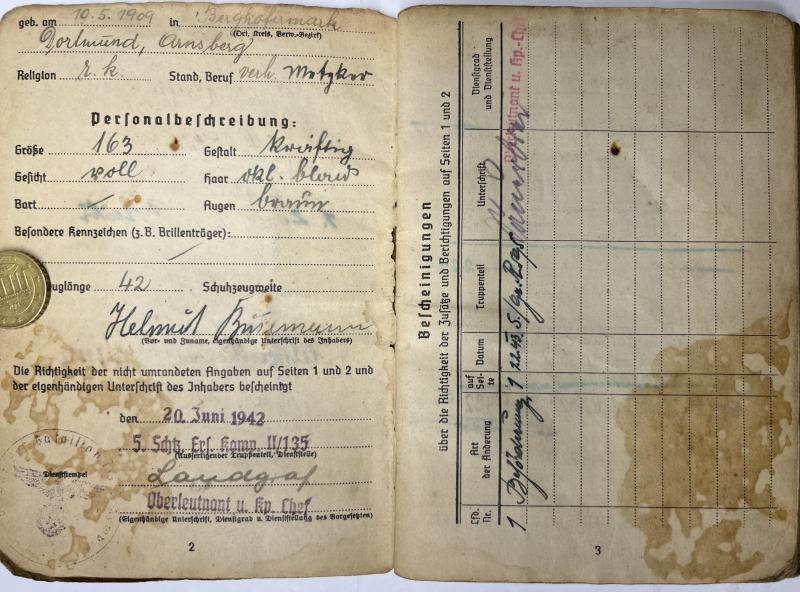 geb. am 10.5.1909 in Berghofermark
(Ort, Kreis, Verw.-Bezirk)
Dortmund, Arnsberg
Religion r. k. Stand, Beruf verh. Metzker
Personalbeschreibung:
Größe 163 Gestalt kräftig
Gesicht voll Haar dkl. blond
Bart — Augen braun
Besondere Kennzeichen (z.B. Brillenträger):
uglänge 42 Schuhzeugweite
Helmut
(Vor- und Zuname, eigenhändige Unterschrift des Inhabers)
Die Richtigkeit der nicht umrandeten Angaben auf Seiten 1 und 2 und
der eigenhändigen Unterschrift des Inhabers bescheinigt
den 20. Juni 1942
5. Schtz. Ers. Komp. II/135
(Ausfertigender Truppenteil, Dienststelle)
Bataillon
Dienststempel
Landgraf
Oberleutnant u. Kp. Chef
(Eigenhändige Unterschrift, Dienstgrad u. Dienststellung des Vorgesetzten)
2
Bescheinigungen
über die Richtigkeit der Zusätze und Berichtigungen auf Seiten 1 und 2
Lfd. Nr.
Art der Änderung
auf Seite
Datum
Truppenteil
Unterschrift
Dienstgrad und Dienststellung
1 Beförderung 1
Oberleutnant u. Kp.-Chef
3